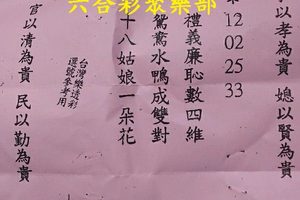 六合彩樂部
子以孝為貴 媳以賢為貴
12 02 25 33
禮義廉恥數四維
鴛鴦水鴨成雙對
十八姑娘一朵花
台灣樂透彩
選號參考用
官以清為貴 民以勤為貴